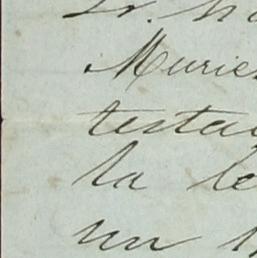 Sr.
Murie
testa
la le
un